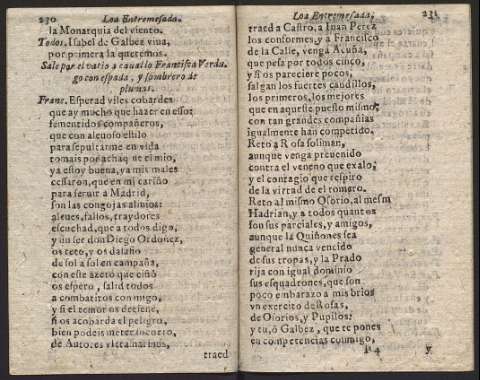 230 Loa Entremesada.
la Monarquia del viento.
Todos. Isabel de Galbez viua,
por primera la queremos.
Sale por el patio a cauallo Francisca Verdu
go con espada, y sombrero de
plumas.
Franc. Esperad viles cobardes
que ay mucho que hazer en esso
fementidos compañeros,
que con aleuoso estilo
para sepultarme en vida
tomais por achaq̃ ue el mio,
ya estoy buena, ya mis males
cessaron, que en mi cariño
para seruir a Madrid,
son las congojas aliuios:
aleues, falsos, traydores
escuchad, que a todos digo,
y un ser don Diego Ordoñez,
os reto, y os
de sol a sol en campaña,
con este azero que ciño
os espero, salid todos
a combatiros conmigo,
y si el temor os detiene,
si os acobarda el peligro,
bien podeis meter
de Autores
traed
Loa Entremesada. 231
traed a Castro, a Iuan Perez
los conformes, y a Francisco
de la Calle, venga Acuña,
que pesa por todos cinco,
y si os pareciere pocos,
salgan los fuertes caudillos,
los primeros, los mejores
que en aqueste puesto mismo,
con tan grandes compañias
igualmente han competido.
Reto a Rosa soliman,
aunque venga preuenido
contra el veneno que exalo,
y el contagio que respiro
de la virtad de el romero.
Reto al mismo Osorio, al mesm
Hadrian, y a todos quantos
son sus parciales, y amigos,
aunque la Quiñones sea
general nunca vencido
de sus tropas, y la Prado
rija con igual dominio
sus esquadrones, que son
poco embarazo a mis brios
vn exercito de Rosas,
de Osorios, y Pupilos:
y tu, ô Galbez, que te pones
en competencias conmigo,
P 4 y